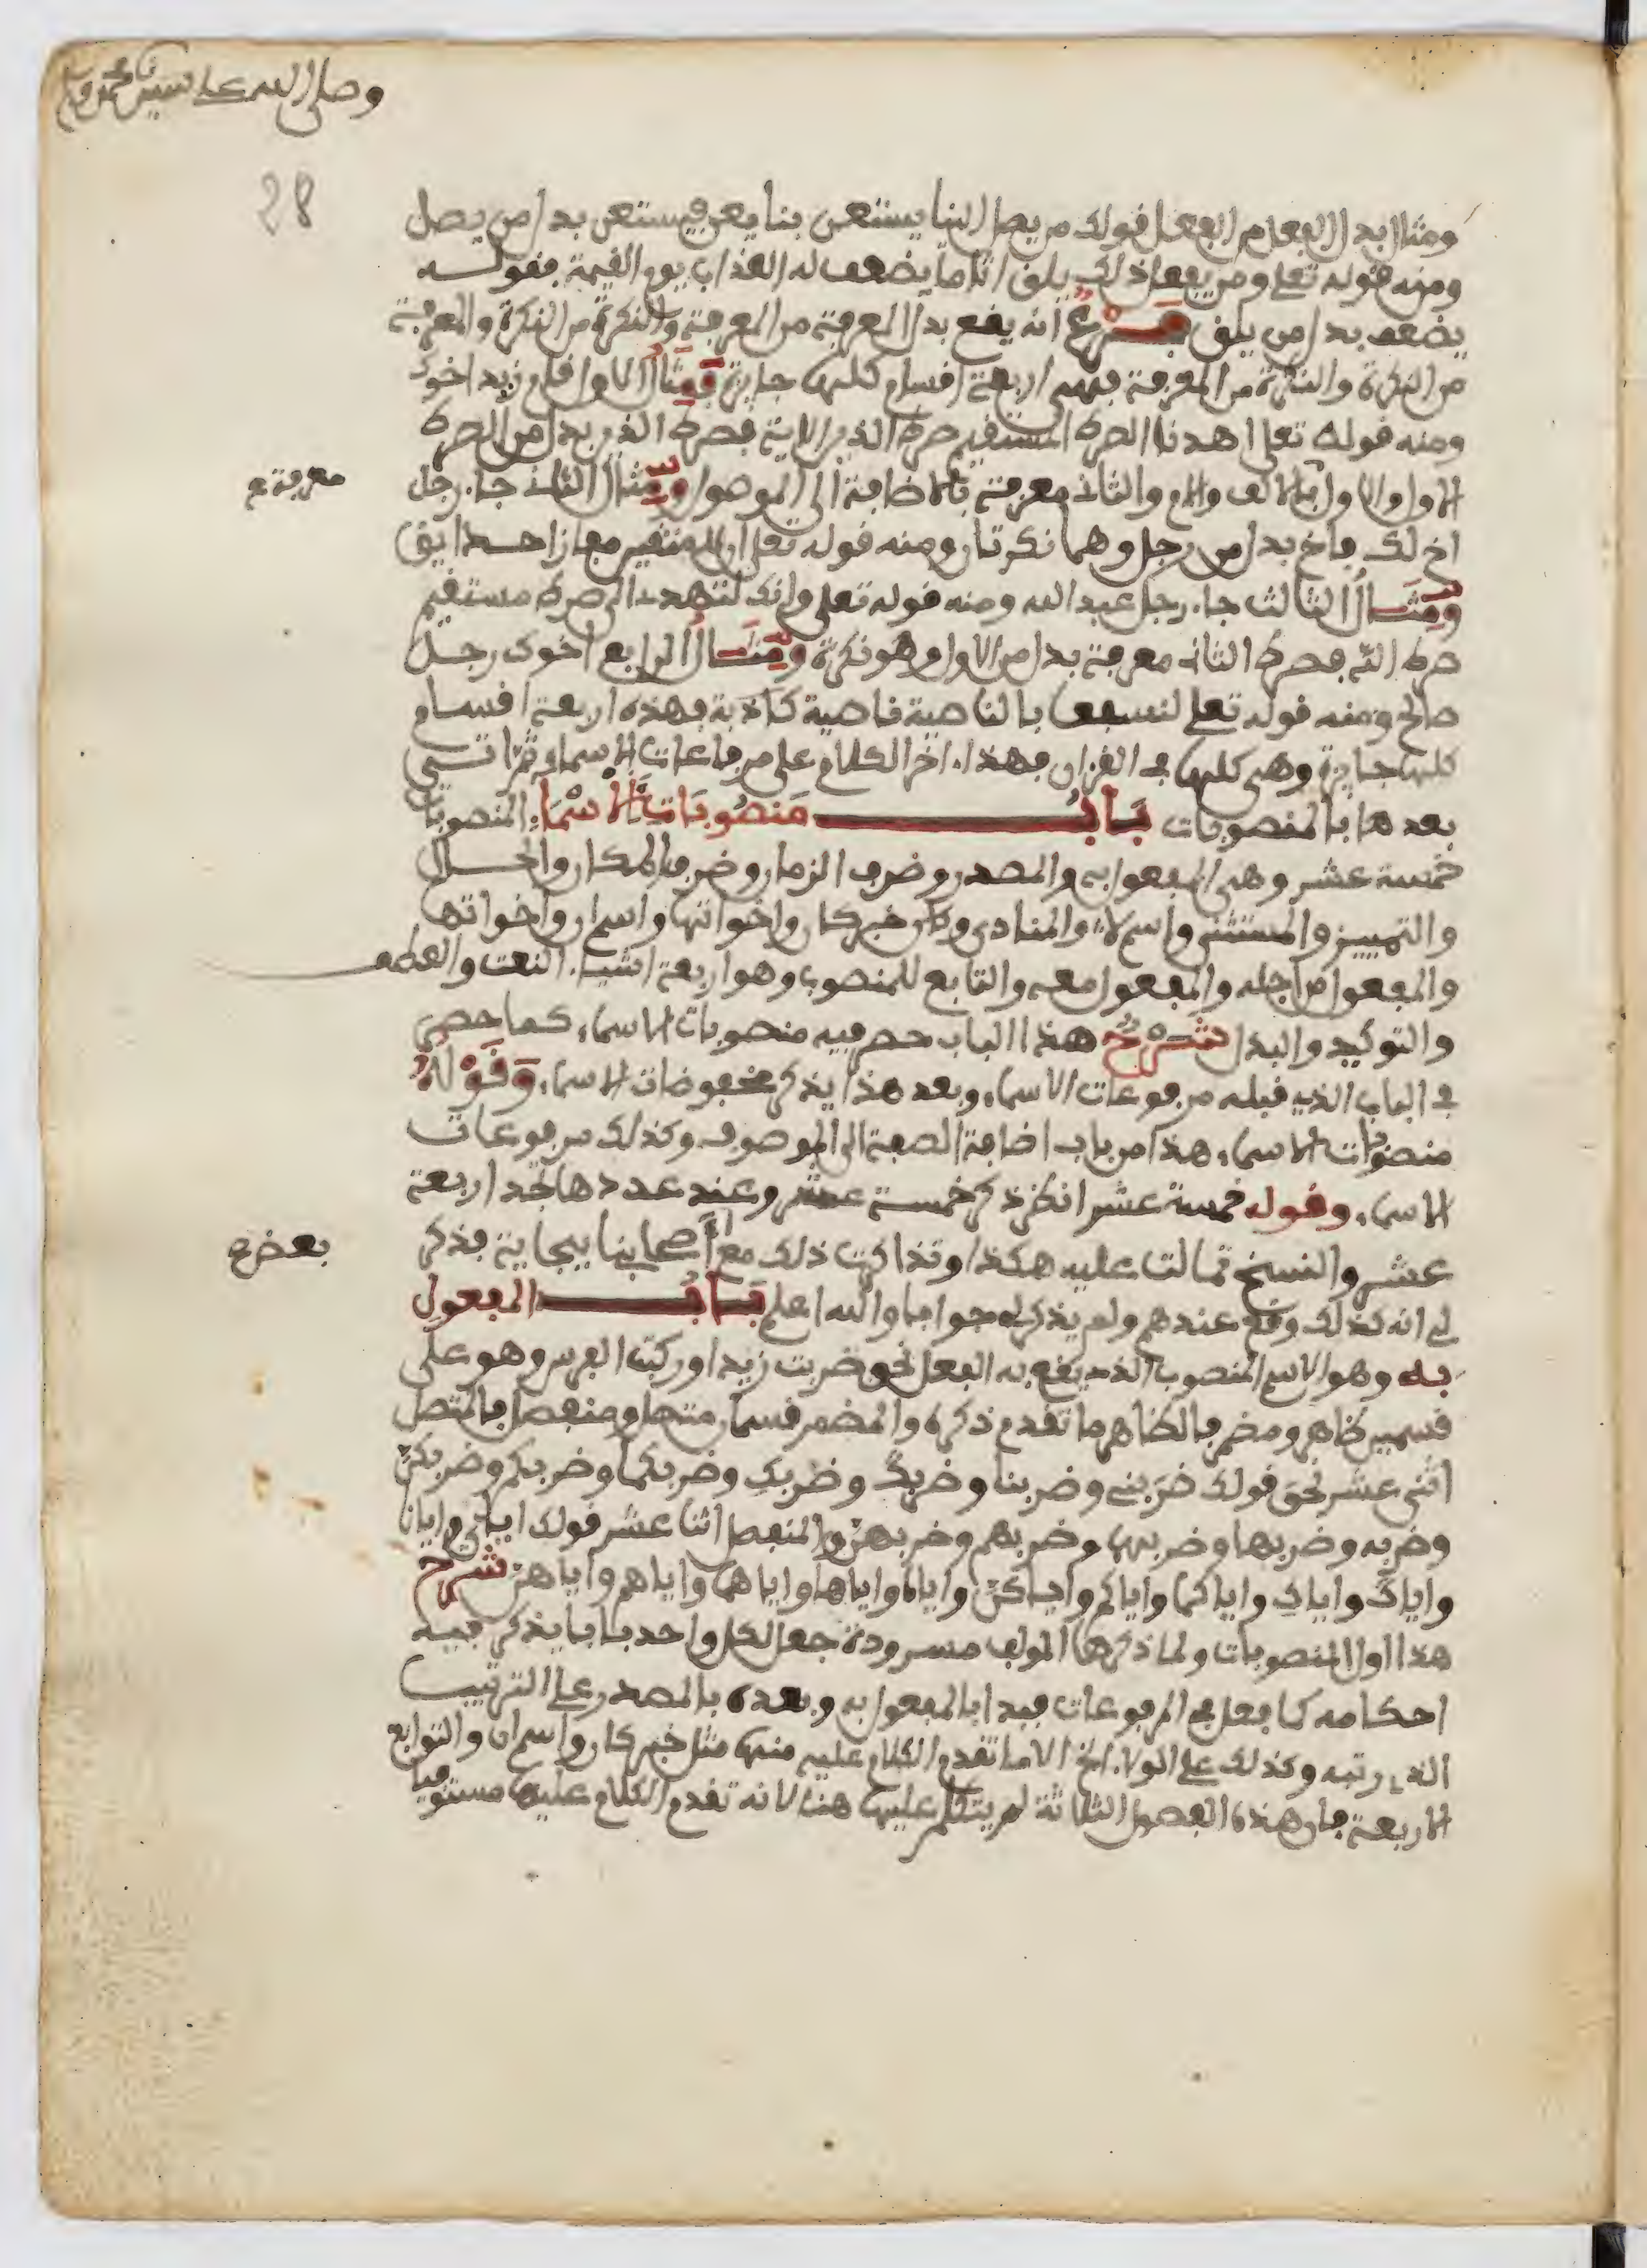 وصلى الله على سيدنا محمد
28
ومثال بدل الفعل من الفعل قولك من يصل الينا يستعن بنا يعن فيستعن بدل من يصل
ومنه قوله تعلى ومن يفعل ذلك يلق اثاما يضعف له العذاب يوم القيمة فقولـــه
يضعف بدل من يلق فــرع انه يقع بدل المعرفة من المعرفة والنكرة من النكرة والمعرفة
من النكرة والنكرة من المعرفة فهي اربعة اقسام كلها جايزة فمثال الاول قام زيد اخوك
ومنه قولك تعلى اهدنا الصرط المستقيم صرط الذين الاية فصرط الذين بدل من الصرط
الاول والاول بالالف والام والثاني معرفة بالاضافة الى الموصول ومثال الثاني جاء رجل
معرفة
اخ لك فاخ بدل من رجل وهما نكرتان ومنه قوله تعلى ان للمتقين مفازا حدايق
ومثــال الثالث جاء رجل عبد الله ومنه قوله تعلى وانك لتهدي الى صرط مستقيم
صرط الله فصرط الثاني معرفة بدل من الاول وهو نكرة ومثــال الرابع اخوك رجــل
صالح ومنه قوله تعلى لنسفعا بالناصية ناصية كاذبة فهذه اربعة اقسام
كلها جايزة وهي كلها في القران فهذا اخر الكلام على مرفوعات الاسماء
بعدها بالمنصوبات بــاب منصوبات الاسماء المنصوبات
خمسة عشر وهي المفعول به والمصدر وضرف الزمان وضرف المكان والحــال
والتمييز والمستثنى واسم لا والمنادى وخبر كان واخواتها واسم ان واخواتها
والمفعول من اجله والمفعول معه والتابع للمنصوب وهو اربعة اشياء النعت والعطف
والتوكيد والبدل شــرح هذا الباب حصر فيه منصوبات الاسماء كما حصر
في الباب الذي قبله مرفوعات الاسماء وبعد هذا يذكر مخفوضات الاسماء وقوله
منصوبات الاسماء هذا من باب اضافة الصفة الى الموصوف وكذلك مرفوعات
الاسماء وقوله خمسة عشر انظر ذكر خمسة عشر وعند عددها تجد اربعة
عشر والنسخ تمالت عليه هكذا وتذاكرت ذلك مع اصحابنا ببجاية فذكر
بعض
لي انه كذلك وقع عندهم ولم يذكر له جوابا والله اعلم بــاب المفعول
به وهو الاسم المنصوب الذي يقع به الفعل نحو ضربت زيدا وركبت الفرس وهو على
قسمين ظاهر ومضمر فالظاهر ما تقدم ذكره والمضمر قسمان متصل ومنفصل فالمتصل
اثنى عشر نحو قولك ضربني وضربنا وضربك وضربك وضربكما وضربكم وضربكن
وضربه وضربها وضربهما وضربهم وضربهن والمنفصل اثنا عشر قولك اياي وايانا
واياك واياك واياكما واياكم واياكن واياه واياها واياهما واياهم واياهن شرح
هذا اول المنصوبات ولما ذكرها المولف مسرودة جعل لكل واحد بابا يذكر فيه
احكامه كما فعل في المرفوعات فبدا بالمفعول به وبعده بالمصدر على الترتيب
الذي رتبه وكذلك على الولاء الخ الا ما تقدم الكلام عليه منها مثل خبر كان واسم ان والتوابع
الاربعة فان هذه الفصول الثلاثة لم يتكلم عليها هنا لانه تقدم الكلام عليها مستوفيا